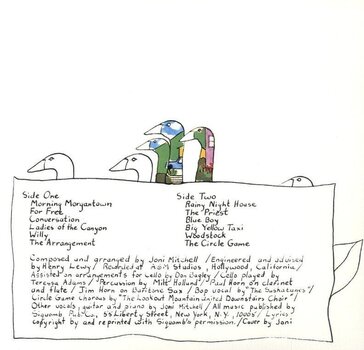 Side One
Morning Morgantown
For Free
Conversation
Ladies of the Canyon
Willy
The Arrangement
Side Two
Rainy Night House
The Priest
Blue Boy
Big Yellow Taxi
Woodstock
The Circle Game
Composed and arranged by Joni Mitchell / Engineered and advised
by Henry Lewy / Recorded at A&M Studios, Hollywood, California /
Assisted on arrangements for cello by Don Bagley / Cello played by
Teressa Adams / Percussion by Milt Holland / Paul Horn on clarinet
and flute / Jim Horn on Baritone Sax / Bop vocal by "The Saskatunes" /
Circle Game chorus by "The Lookout Mountain United Downstairs Choir" /
Other vocals, guitar and piano by Joni Mitchell / All music published by
Siquomb Pub. Co., 55 Liberty Street, New York, N.Y., 10005 / Lyrics
copyright by and reprinted with Siquomb's permission. / Cover by Joni